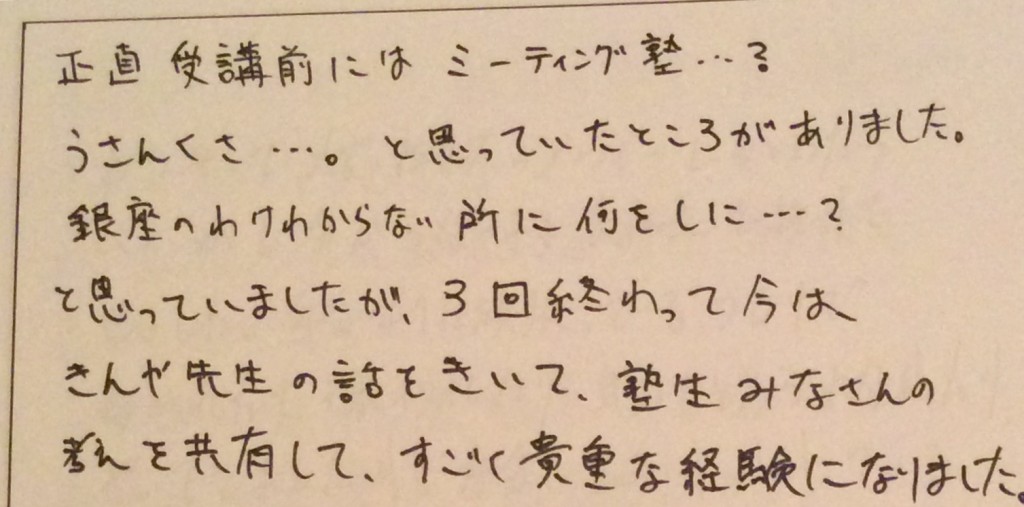 正直 受講前には ミーティング塾…?
うさんくさ…。と思っていたところがありました。
銀座のわけわからない所に何をしに…?
と思っていましたが、3回終わって今は
きんや先生の話をきいて、塾生みなさんの
考えを共有して、すごく貴重な経験になりました。